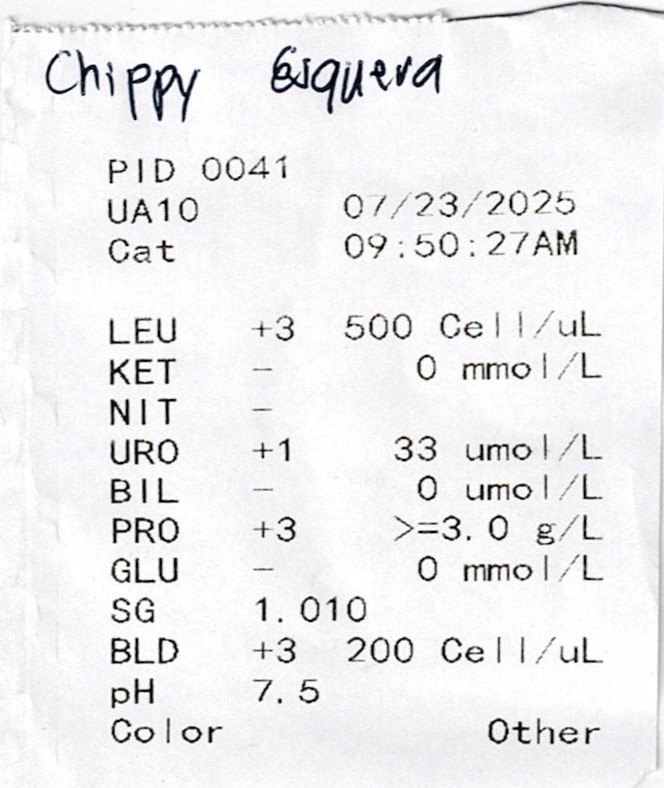 Chippy Esquera
PID 0041
UA10 07/23/2025
Cat 09:50:27AM
LEU +3 500 Cell/uL
KET - 0 mmol/L
NIT -
URO +1 33 umol/L
BIL - 0 umol/L
PRO +3 >=3.0 g/L
GLU - 0 mmol/L
SG 1.010
BLD +3 200 Cell/uL
pH 7.5
Color Other